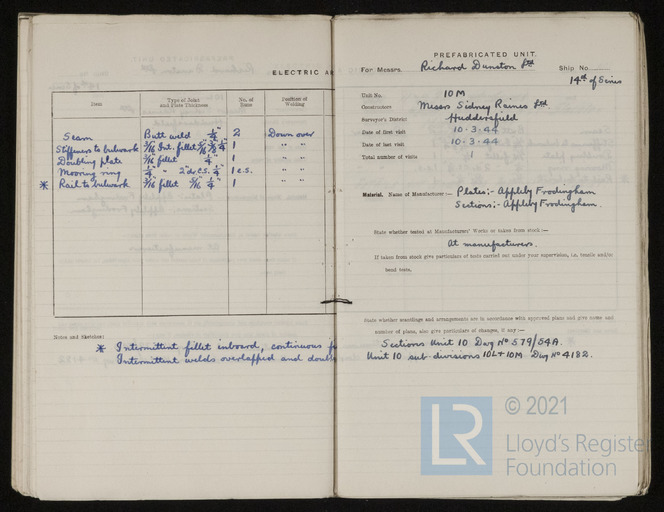 ELECTRIC A
Item Type of Joint and Plate Thickness No. of Runs Position of Welding
Seam Butt weld 1/4" 2 Down over
Stiffeners to bulwark 3/16 Int. fillet 5/16 3/8 1/4 1 " "
Doubling plate 3/16 fillet 1/4" 1 " "
Mooring ring 1/4" " 2" dr C.S. 1/4" 1 e.s. " "
* Rail to bulwark 3/16 fillet 5/16 1/4" 1 " "
Notes and Sketches:
* Intermittent fillet inboard, continuous
Intermittent welds overlapped and
PREFABRICATED UNIT.
For Messrs. Richard Dunston Ltd Ship No.
14th of Series
Unit No. 10M
Constructors Messrs Sidney Raines Ltd.
Surveyor's District Huddersfield
Date of first visit 10-3-44
Date of last visit 10-3-44
Total number of visits 1
Material. Name of Manufacturer:— Plates:- Appleby Frodingham
Sections:- Appleby Frodingham.
State whether tested at Manufacturers' Works or taken from stock:—
At manufacturers.
If taken from stock give particulars of tests carried out under your supervision, i.e. tensile and/or
bend tests.
State whether scantlings and arrangements are in accordance with approved plans and give name and
number of plans, also give particulars of changes, if any:—
Sections Unit 10 Dwg No 579/54A.
Unit 10 sub-divisions 10L + 10M Dwg No 4182.
LR © 2021
Lloyd's Register
Foundation